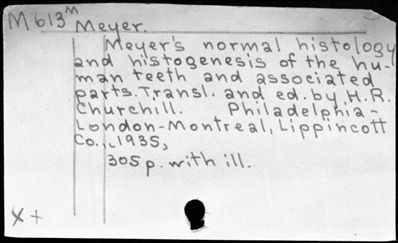 M613ᵐ Meyer.
Meyer's normal histology
and histogenesis of the hu-
man teeth and associated
parts. Transl. and ed. by H. R.
Churchill. Philadelphia-
London-Montreal, Lippincott
Co., c1935,
305 p. with ill.
x +